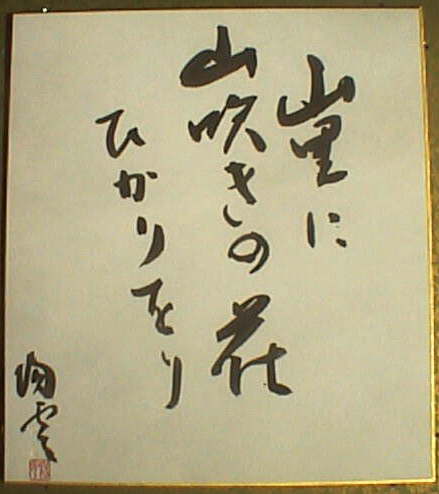 山里に
山吹きの花
ひかりをり